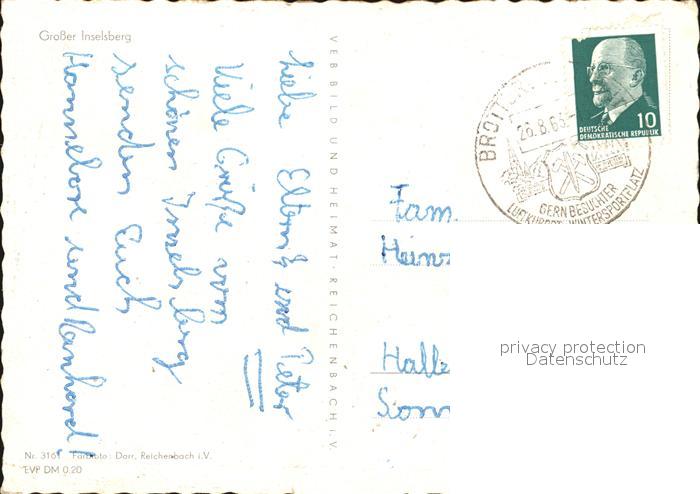 Großer Inselsberg
Liebe Eltern und Peter
Viele Grüße vom
schönen Inselsberg
senden Euch
Hannelore und Manhard!
VEB BILD UND HEIMAT · REICHENBACH i. V.
Nr. 3161 Farbfoto: Darr, Reichenbach i.V.
EVP DM 0.20
BROTTE
26.8.63
GERN BESUCHTER
LUFTKURORT WINTERSPORTPLATZ
10
DEUTSCHE
DEMOKRATISCHE REPUBLIK
Fam.
Heinz
Halle
privacy protection
Datenschutz